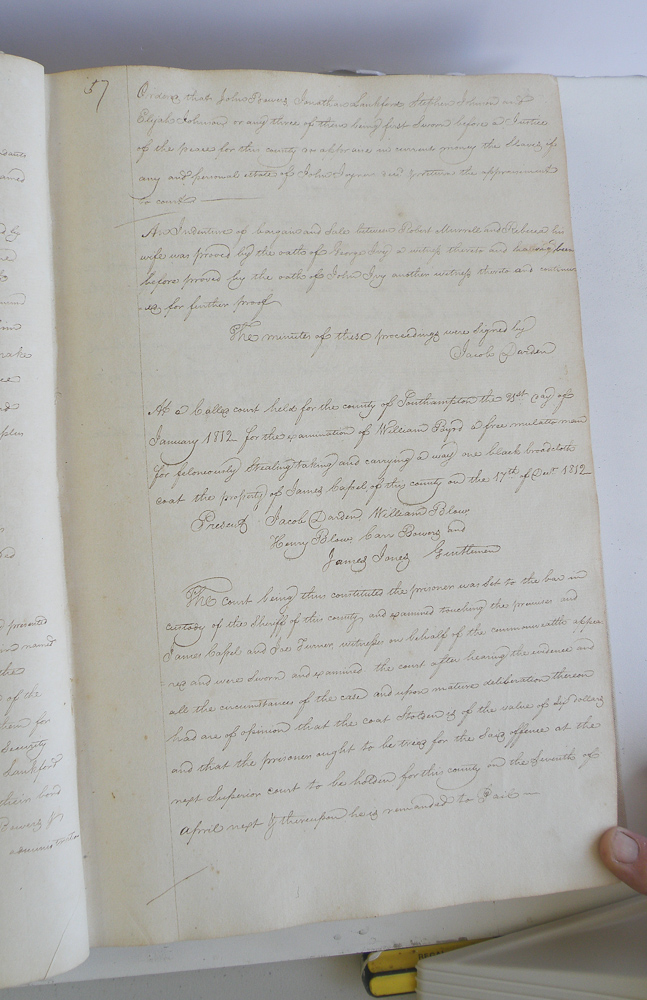 57
Orders that John Bowers Jonathan Lankford Stephen Johnson and
Elijah Johnson or any three of them being first sworn before a Justice
of the peace for this county do appraise in current money the slaves if
any and personal estate of John dec'd & return the appraisment
to court
An Indenture of bargain and sale between Robert Murrell and Rebecca his
wife was proved by the oath of George Ivy a witness thereto and having been
before proved by the oath of John Ivy another witness thereto and continu
ed for further proof
The minutes of these proceedings were signed by
Jacob Darden
At a Called court held for the county of Southampton the 21st day of
January 1812 for the examination of William Byrd a free mulatto man
for feloneously Stealing taking and carrying a way one black broadcloth
coat the property of James Capel of this county on the 17th of Inst 1812
Present Jacob Darden, William Blow
Henry Blow Carr Bowers and
James Jones Gentlemen
The court being thus constituted the prisoner was set to the bar in
custody of the Sheriff of this county and examined touching the premises and
James Capel and Turner witnesses on behalf of the commonwealth appea
red and were sworn and examined the court after hearing the evidence and
all the circumstances of the case and upon mature deliberation thereon
had are of opinion that the coat Stolen is of the value of Six dollars
and that the prisoner ought to be tried for the said offence at the
next Superior court to be holden for this county on the Seventh of
April next & thereupon he is remanded to Jail
presented
named
the
of the
them for
Security
Lankford
their bond
Bowers Jr
administrator